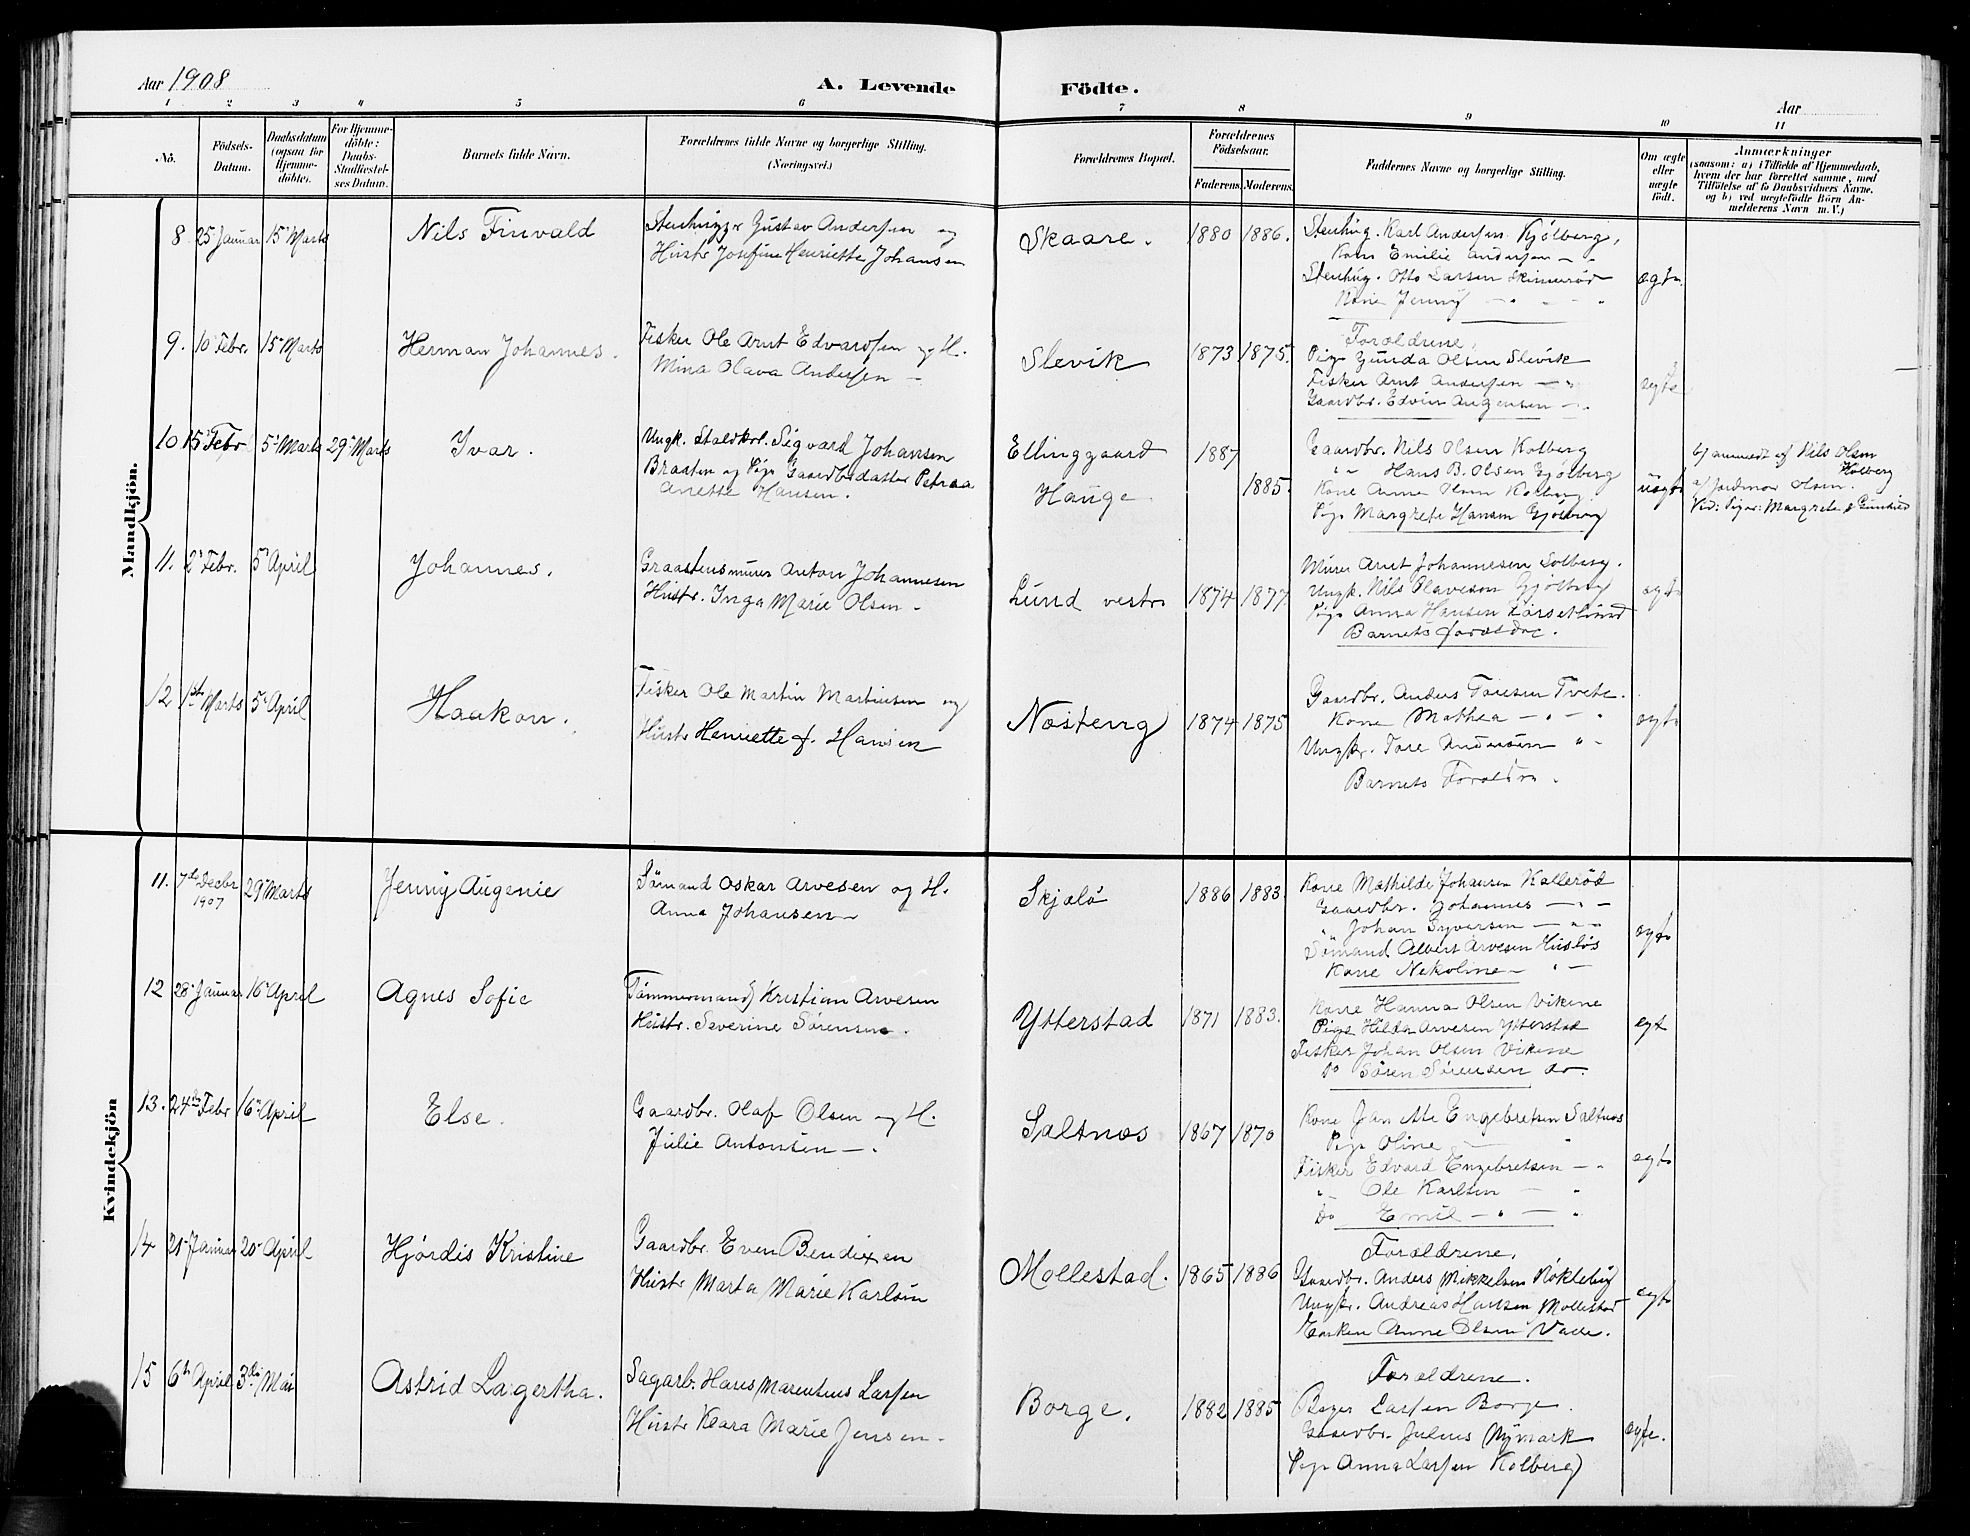 Aar 1908
A. Levende
Födte.
Aar
1 2 3 4 5 6 7 8 9 10 11
No.
Födsels-
Datum.
Daabsdatum
(ogsaa for
Hjemme-
döbte).
For Hjemme-
döbte:
Daabs-
Stadfæstel-
ses Datum.
Barnets fulde Navn.
Forældrenes fulde Navne og borgerlige Stilling.
(Næringsvei.)
Forældrenes Bopæl.
Forældrenes
Födselsaar.
Faderens. Moderens.
Faddernes Navne og borgerlige Stilling.
Om ægte
eller
uægte
födt.
Anmærkninger
(saasom: a) i Tilfælde af Hjemmedaab,
hvem der har forrettet samme, med
Tilföielse af to Daabsvidners Navne.
og b) ved uægtefödte Börn An-
melderens Navn m. V.)
Mandkjön.
8 25 Januar 15 Marts
Nils Finvald
Stenhugger Gustav Andersen og
Hustr Josefine Henriette Johansen
Skaare.
1880 1886.
Stenhug. Karl Andersen Kjølberg,
Kone Emilie Andersen — "
Stenhug. Otto Larsen Skinnerød
Kone Jenny — " — "
ægte.
9. 10 Febr. 15 Marts
Herman Johannes.
Fisker Ole Arnt Edvardsen og H.
Mina Olava Andersen —
Slevik
1873 1875.
Forældrene,
Pige Gunda Olsen Slevik
Fisker Arnt Andersen — "
Gaardbr. Edvin Augensen — "
ægte
10 15 Febr 5 Marts 29 Marts
Yvar.
Ungk. Staldkrl. Sigvard Johansen
Braaten og Pige Gaardbrdatter Petraa
Anette Hansen.
Ellinggaard
Hauge.
1887
1885.
Gaardbr. Nils Olsen Kolberg
" Hans B. Olsen Gjølberg
Kone Anna Olsen Kolberg
Pige Margrete Hansen Gjølberg
uægte
b/ anmeldt af Nils Olsen
Kolberg
a/ Jordmor Olsen.
Vid: Piger: Margrete & Gunhild
11. 2 Febr. 5 April
Johannes.
Graastensmurer Anton Johannesen
Hustr. Inga Marie Olsen —
Lund vestre
1874 1877.
Murer Arnt Johannesen Solberg.
Ungk. Nils Olavesen Gjølberg
Pige Anna Hansen
Barnets forældre.
ægte
12 1ste Marts 5 April
Haakon.
Fisker Ole Martin Martinsen og
Hustr Henriette J. Hansen
Næsteng
1874 1875
Gaardbr. Anders Toresen Tvete.
Kone Mathea — " — "
Ungkr. Tore Andersen " —
Barnets Forældre.
ægte
Kvindekjön
11. 7de Decbr
1907
29 Marts
Jenny Augenie
Sømand Oskar Arvesen og H.
Anna Johansen —
Skjælø
1886 1883.
Kone Mathilde Johansen Kallerød
Gaardbr. Johannes — " —
" Johan Syversen — " —
Sømand Albert Arvesen Husløs
Kone Nekoline — " —
ægte
12 28 Januar 16 April
Agnes Sofie
Tømmermand Kristian Arvesen
Hustr. Severine Sørensen.
Ytterstad
1871 1883.
Kone Hanna Olsen Vikene
Pige Hilda Arvesen Ytterstad
Fisker Johan Olsen Vikene
Do Søren Sørensen do.
egt
13. 24de Febr 16 April
Else.
Gaardbr. Olaf Olsen og H.
Julie Antonsen —.
Saltnæs
1867 1870
Kone Janette Engebretsen Saltnæs
Pige Oline — "
Fisker Edvard Engebretsen — "
" Ole Karlsen — "
Do Emil — " — "
egte
14 21 Januar 20 April
Hjördis Kristine
Gaardbr. Even Bendixen
Hustr Marta Marie Karlsen
Mollestad.
1865 1886
Forældrene.
Gaardbr. Anders Mikkelsen Røkleby
Ungkr. Andreas Hansen Mollestad
Enken Anne Olsen
egte
15 6te April 3die Mai
Astrid Lagertha.
Sagarb. Hans Marentius Larsen
Hustr Klara Marie Jensen —
Borge.
1882 1885
Forældrene.
Larsen Borge.
Gaardbr. Julius Nymark
Pige Anna Larsen Kolberg
egte.